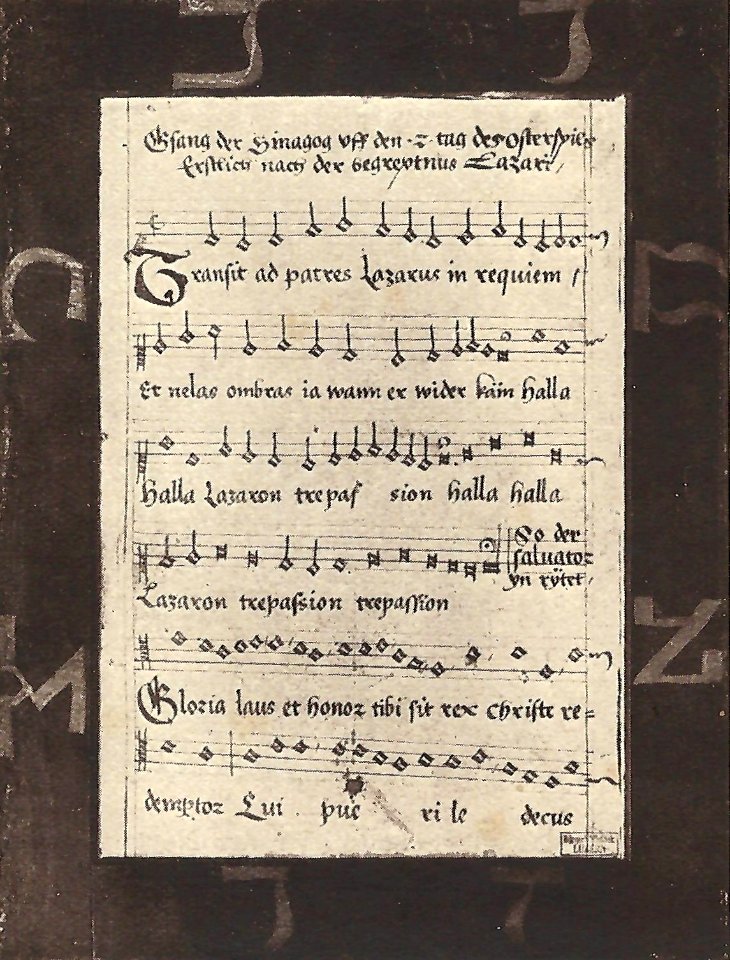 Gsang der Sinagog vff den 2 tag des Osterspils
Erstlich nach der begreptnus Lazari
Transit ad patres Lazarus in requiem /
Et nelas ombras ia wann er wider käm halla
halla Lazaron trepas sion halla halla
So der
saluator
yn rytet
Lazaron trepassion trepassion
Gloria laus et honor tibi sit rex christe re=
demptor Cui pue ri le decus